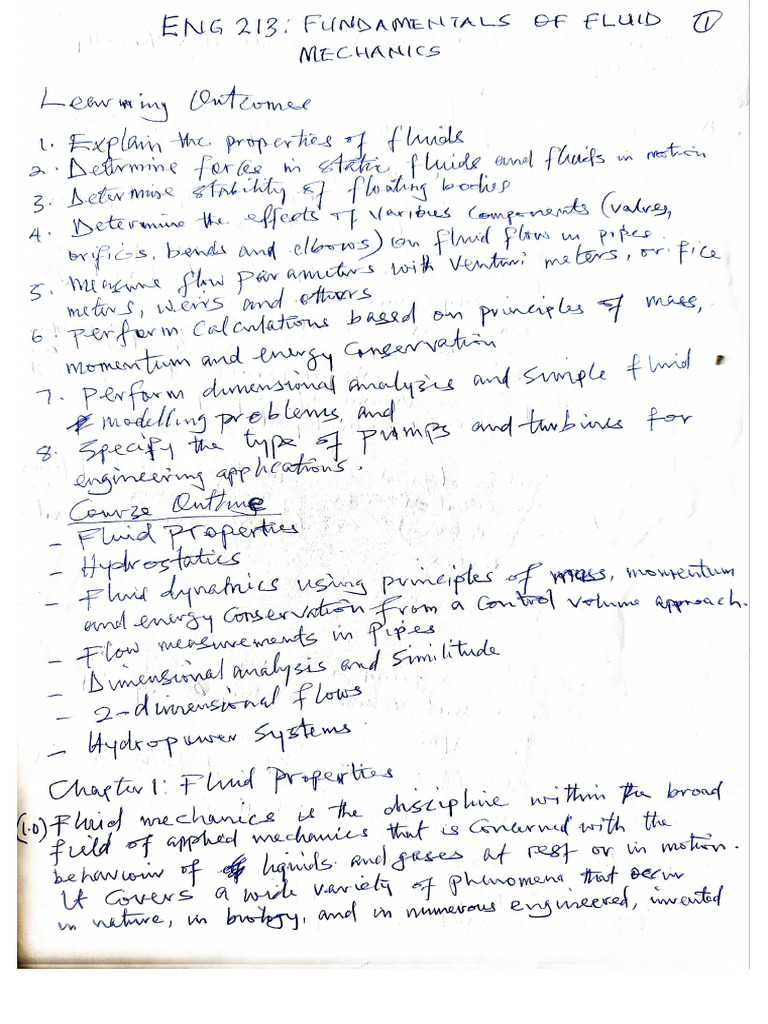 ENG 213: FUNDAMENTALS OF FLUID ①
MECHANICS
Learning Outcomes
1. Explain the properties of fluids
2. Determine forces in static fluids and fluids in motion
3. Determine stability of floating bodies
4. Determine the effects of various components (valves,
orifices, bends and elbows) on fluid flow in pipes.
5. Measure flow parameters with venturi meters, orifice
meters, weirs and others
6. Perform calculations based on principles of mass,
momentum and energy conservation
7. Perform dimensional analysis and simple fluid
modelling problems, and
8. Specify the type of pumps and turbines for
engineering applications.
Course Outline
- Fluid Properties
- Hydrostatics
- Fluid dynamics using principles of mass, momentum
and energy conservation from a control volume approach.
- Flow measurements in pipes
- Dimensional analysis and similitude
- 2-dimensional flows
- Hydropower systems.
Chapter 1: Fluid Properties
(1.0) Fluid mechanics is the discipline within the broad
field of applied mechanics that is concerned with the
behaviour of liquids and gases at rest or in motion.
It covers a wide variety of phenomena that occur
in nature, in biology, and in numerous engineered, invented